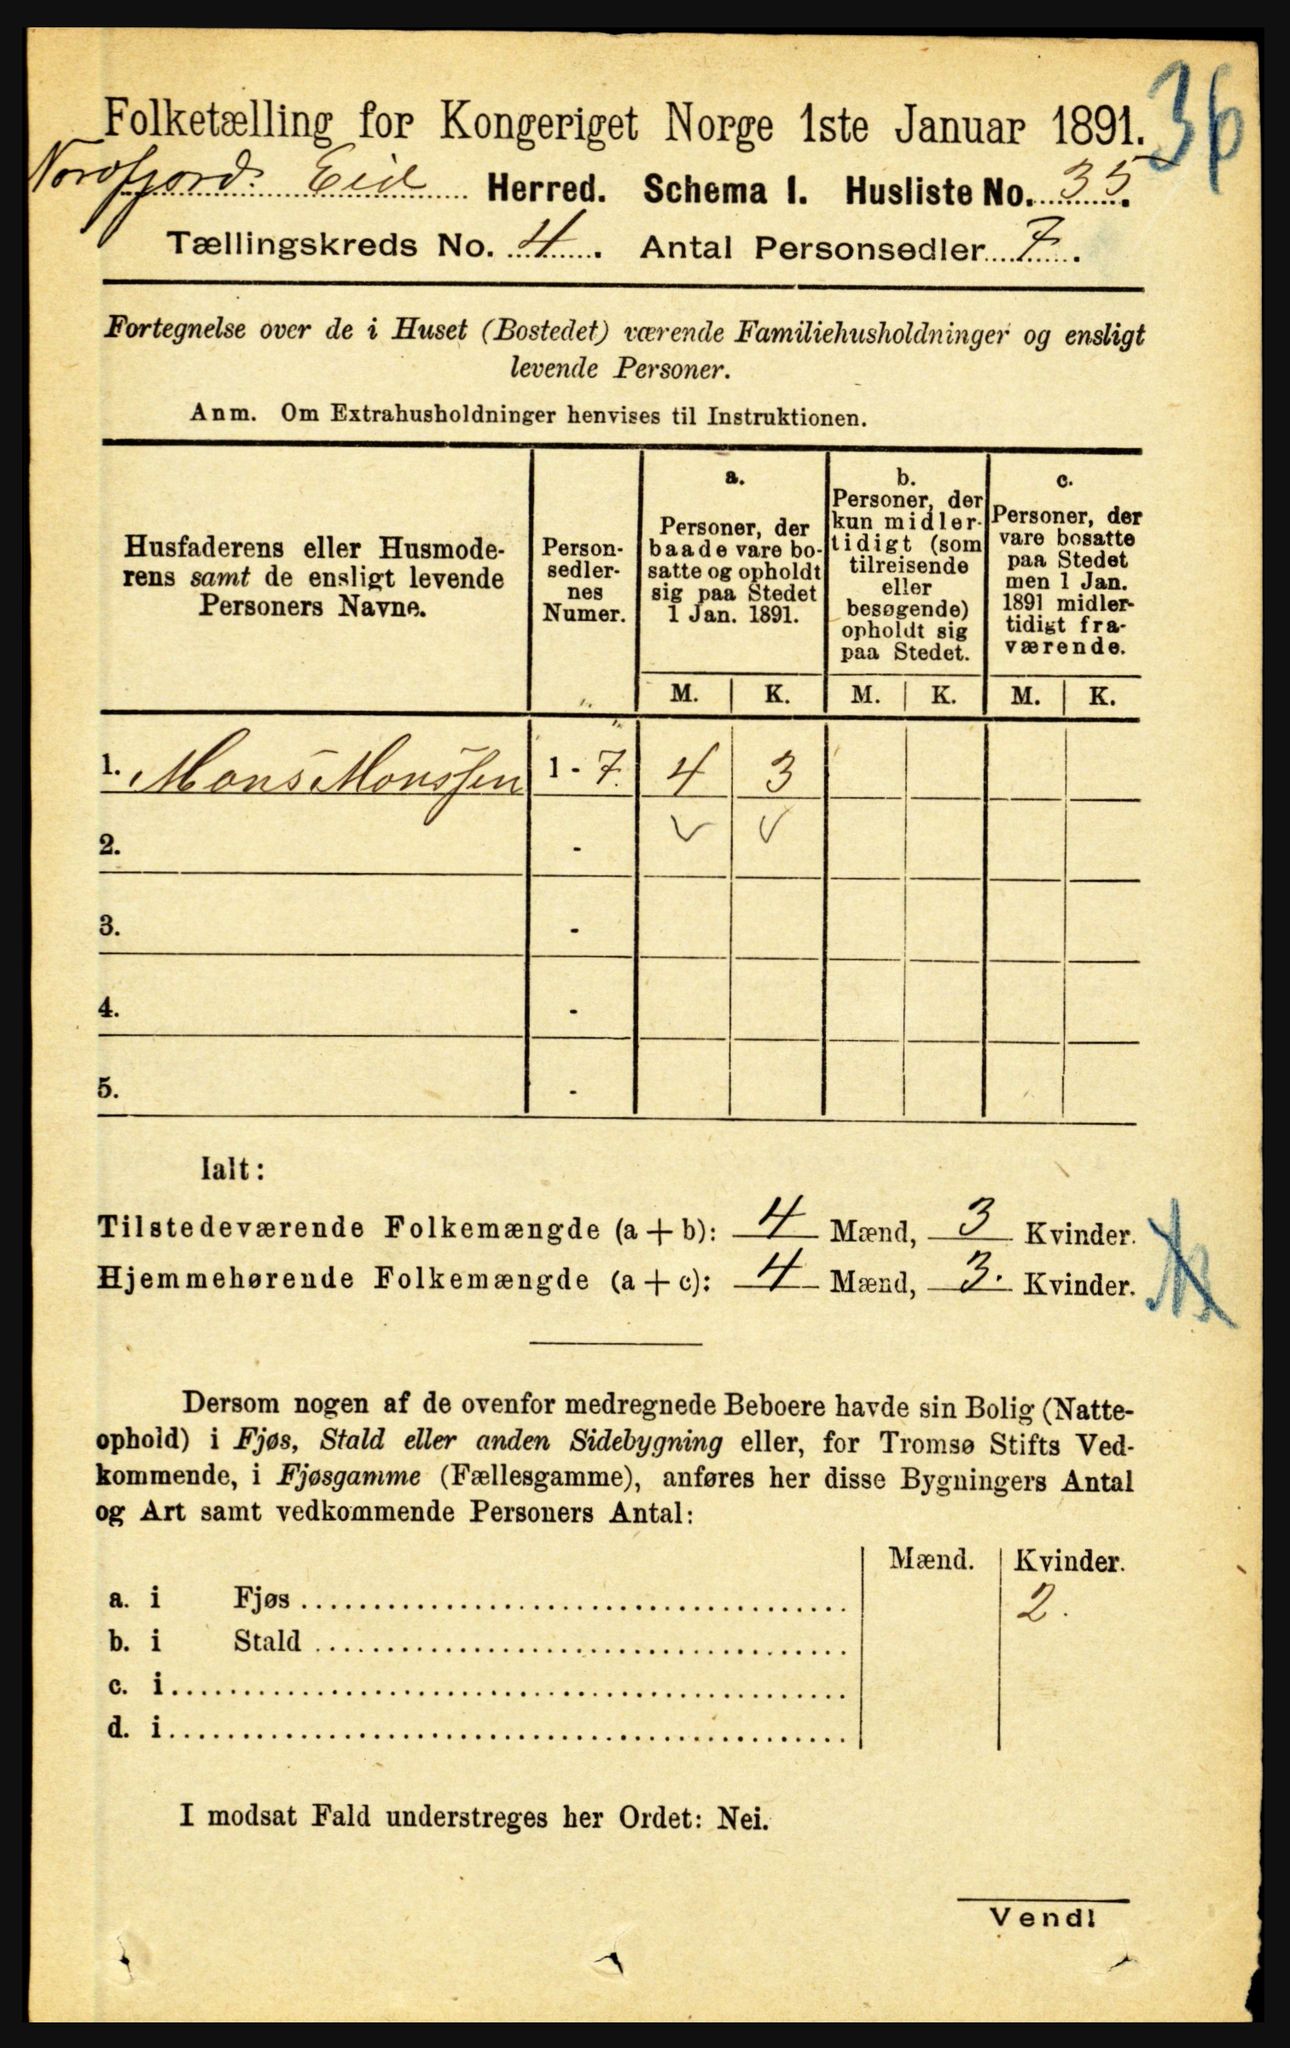 36
Folketælling for Kongeriget Norge 1ste Januar 1891.
Nordfjord. Eid Herred. Schema I. Husliste No. 35.
Tællingskreds No. 4. Antal Personsedler 7.
Fortegnelse over de i Huset (Bostedet) værende Familiehusholdninger og ensligt
levende Personer.
Anm. Om Extrahusholdninger henvises til Instruktionen.
Husfaderens eller Husmode-
rens samt de ensligt levende
Personers Navne.
Person-
sedler-
nes
Numer.
a.
Personer, der
baade vare bo-
satte og opholdt
sig paa Stedet
1 Jan. 1891.
b.
Personer, der
kun midler-
tidigt (som
tilreisende
eller
besøgende)
opholdt sig
paa Stedet.
c.
Personer, der
vare bosatte
paa Stedet
men 1 Jan.
1891 midler-
tidigt fra-
værende.
M. K. M. K. M. K.
1. Mons Monssen 1 - 7. 4 3
2. -
3. -
4. -
5. -
Ialt:
Tilstedeværende Folkemængde (a + b): 4 Mænd, 3 Kvinder.
Hjemmehørende Folkemængde (a + c): 4 Mænd, 3. Kvinder.
Dersom nogen af de ovenfor medregnede Beboere havde sin Bolig (Natte-
ophold) i Fjøs, Stald eller anden Sidebygning eller, for Tromsø Stifts Ved-
kommende, i Fjøsgamme (Fællesgamme), anføres her disse Bygningers Antal
og Art samt vedkommende Personers Antal:
Mænd. Kvinder.
a. i Fjøs 2.
b. i Stald
c. i
d. i
I modsat Fald understreges her Ordet: Nei.
Vend!